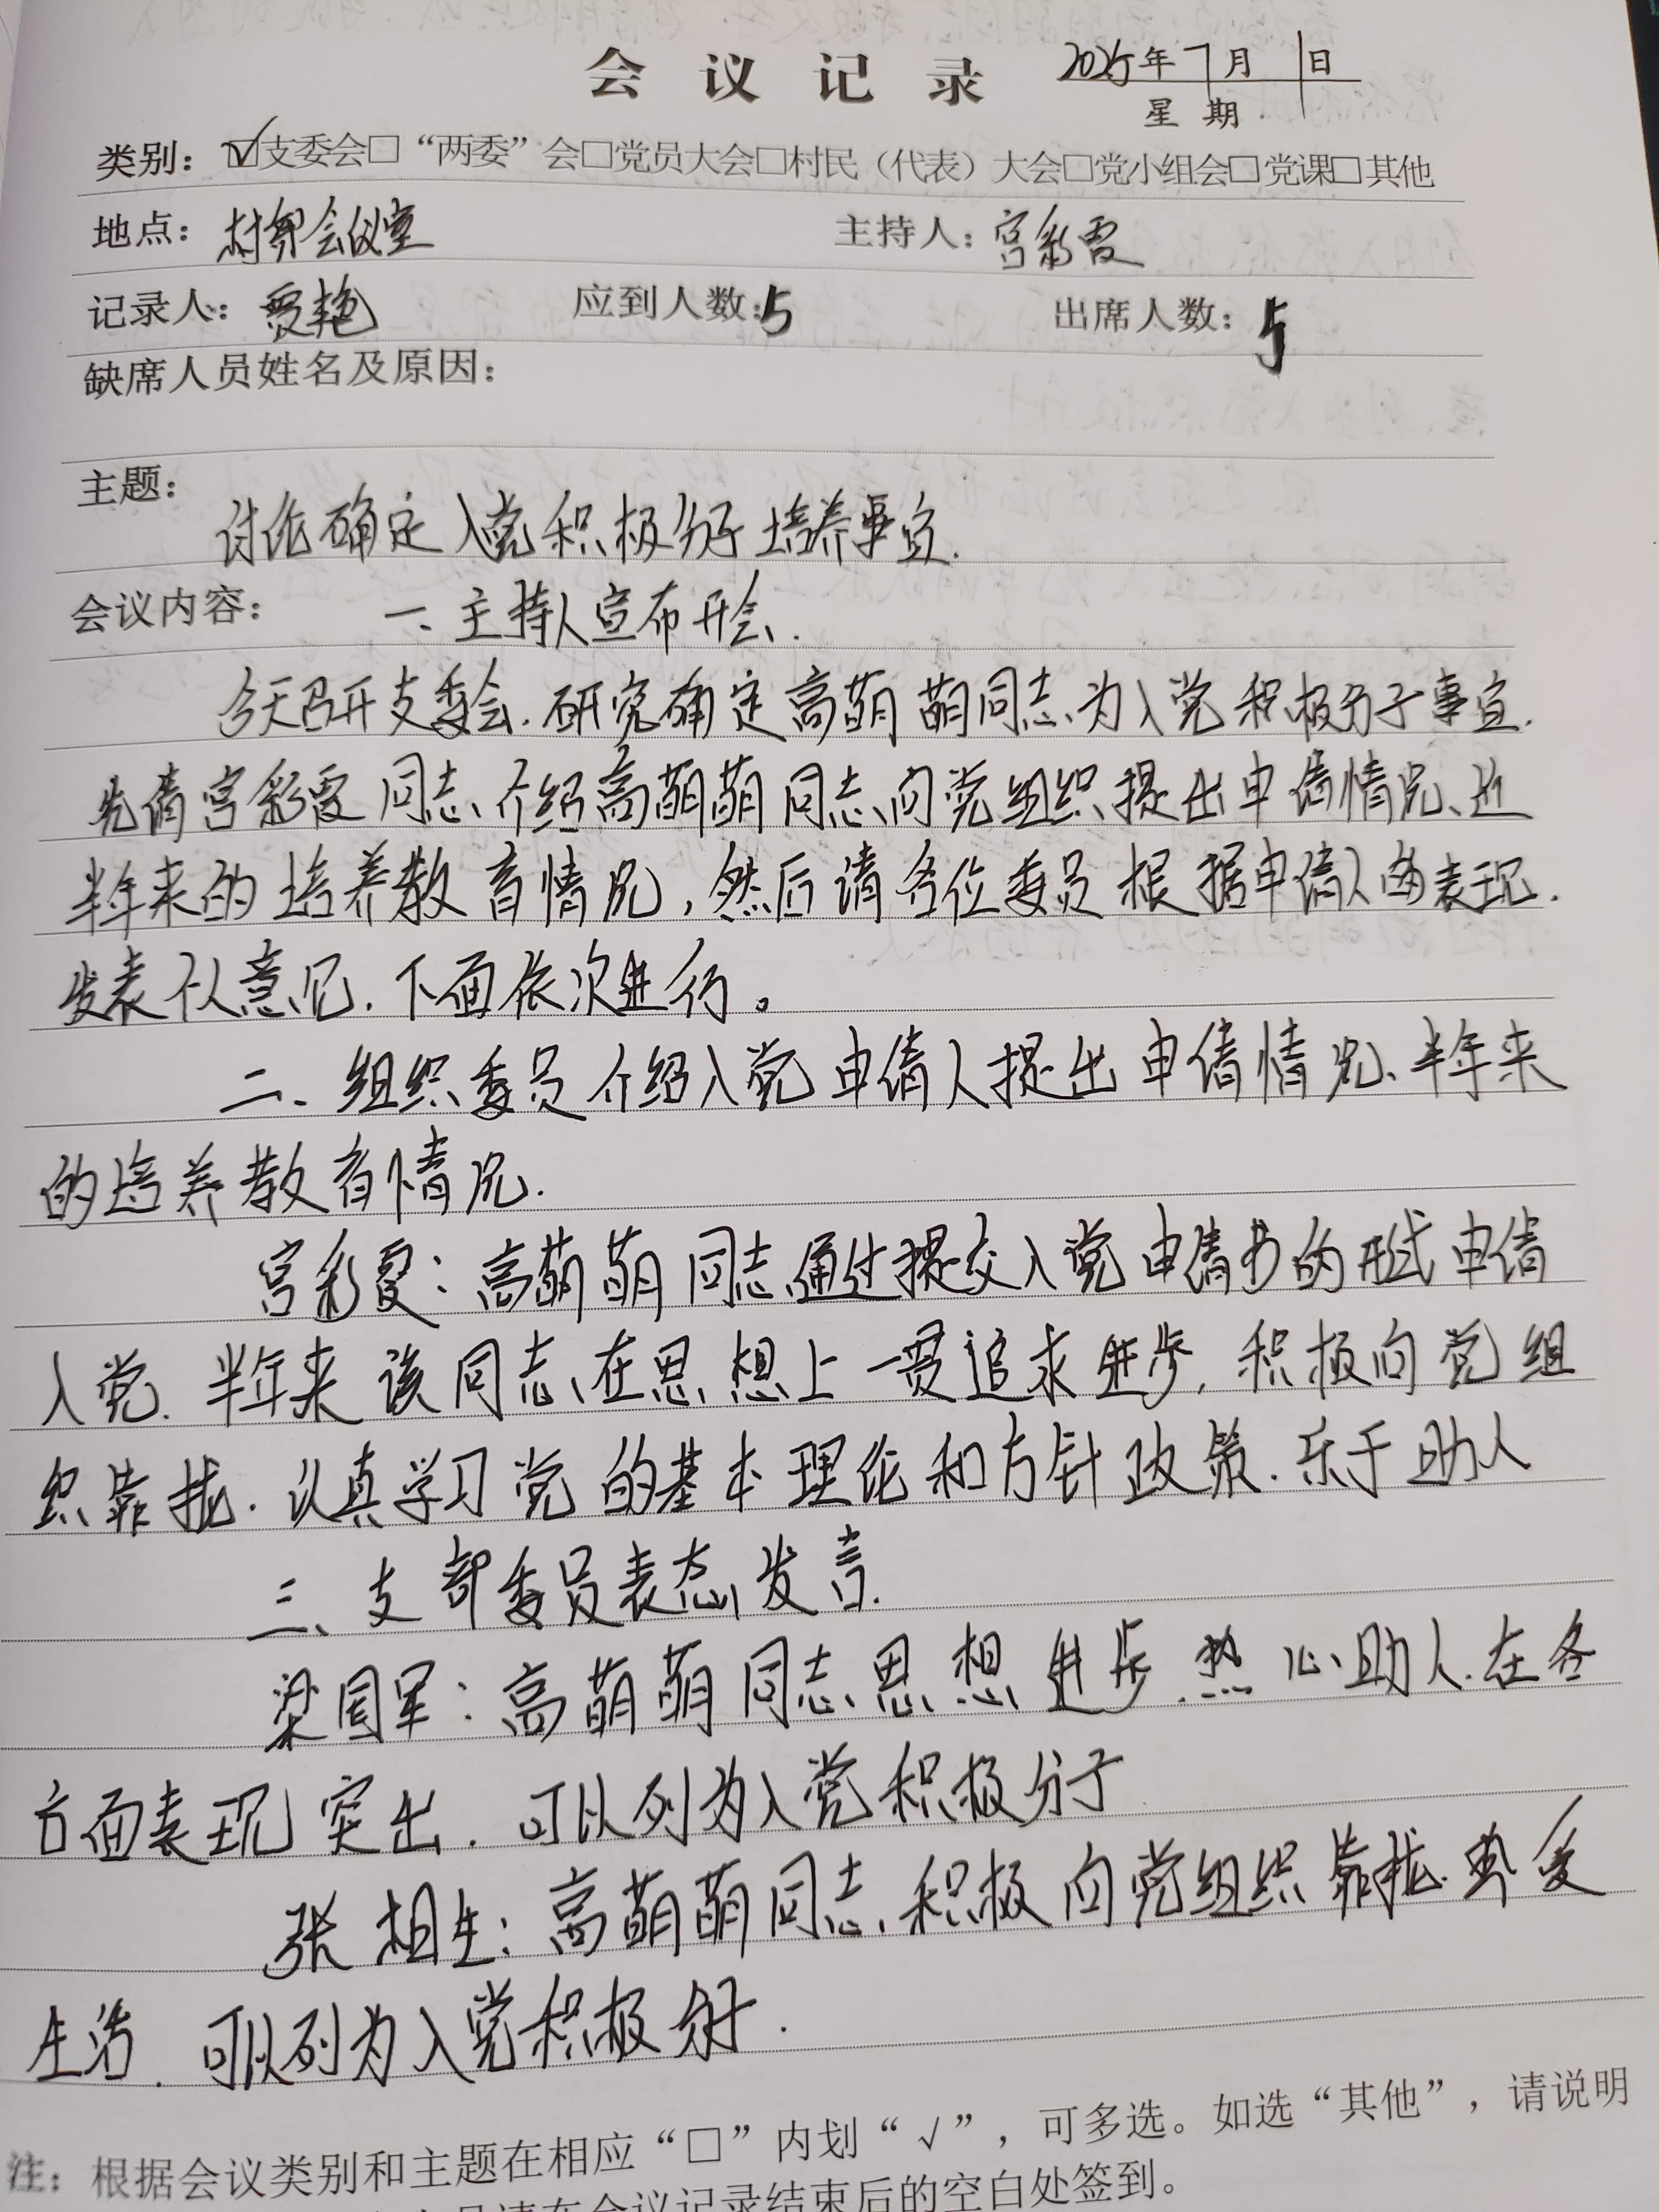 会议记录 2025年7月1日
星期
类别：☑支委会□“两委”会□党员大会□村民（代表）大会□党小组会□党课□其他
地点：村部会议室 主持人：宫彩霞
记录人：贾艳 应到人数：5 出席人数：5
缺席人员姓名及原因：
主题：
讨论确定入党积极分子培养事宜.
会议内容： 一、主持人宣布开会.
今天召开支委会.研究确定高萌萌同志为入党积极分子事宜.
先请宫彩霞同志介绍高萌萌同志向党组织提出申请情况、近
半年来的培养教育情况,然后请各位委员根据申请人的表现.
发表个人意见.下面依次进行。
二、组织委员介绍入党申请人提出申请情况、半年来
的培养教育情况.
宫彩霞：高萌萌同志通过提交入党申请书的形式申请
入党.半年来该同志在思想上一贯追求进步,积极向党组
织靠拢.认真学习党的基本理论和方针政策.乐于助人
三、支部委员表态发言.
梁国军：高萌萌同志思想进步.热心助人.在各
方面表现突出.可以列为入党积极分子
张相生：高萌萌同志积极向党组织靠拢.热爱
生活.可以列为入党积极分子.
注：根据会议类别和主题在相应“□”内划“√”，可多选。如选“其他”，请说明
请在会议记录结束后的空白处签到。